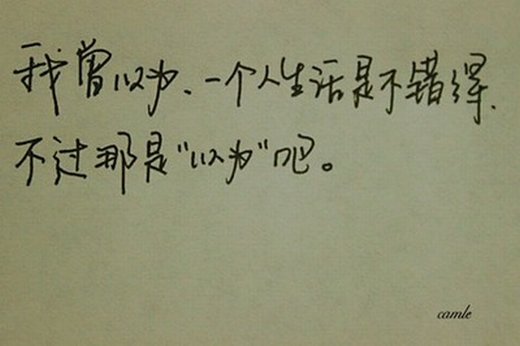 我曾以为、一个人生活是不错得、
不过那是“以为”吧。
camle